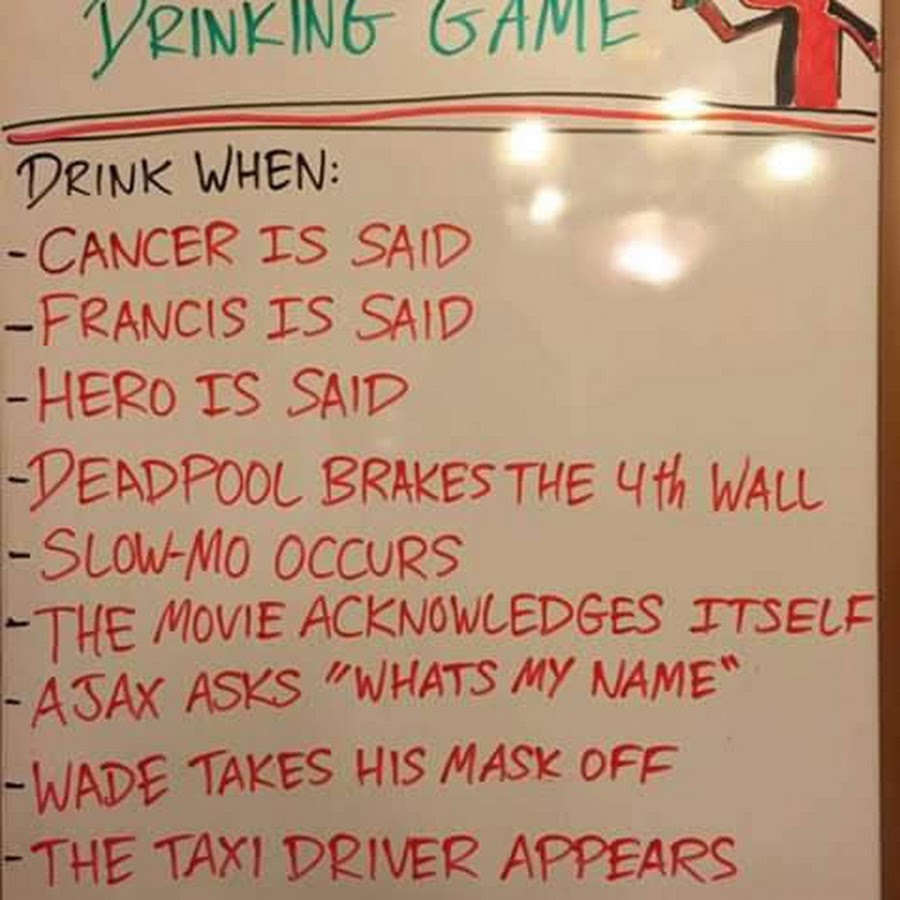 DRINKING GAME
DRINK WHEN:
- CANCER IS SAID
- FRANCIS IS SAID
- HERO IS SAID
- DEADPOOL BRAKES THE 4th WALL
- SLOW-MO OCCURS
- THE MOVIE ACKNOWLEDGES ITSELF
- AJAX ASKS "WHATS MY NAME"
- WADE TAKES HIS MASK OFF
- THE TAXI DRIVER APPEARS